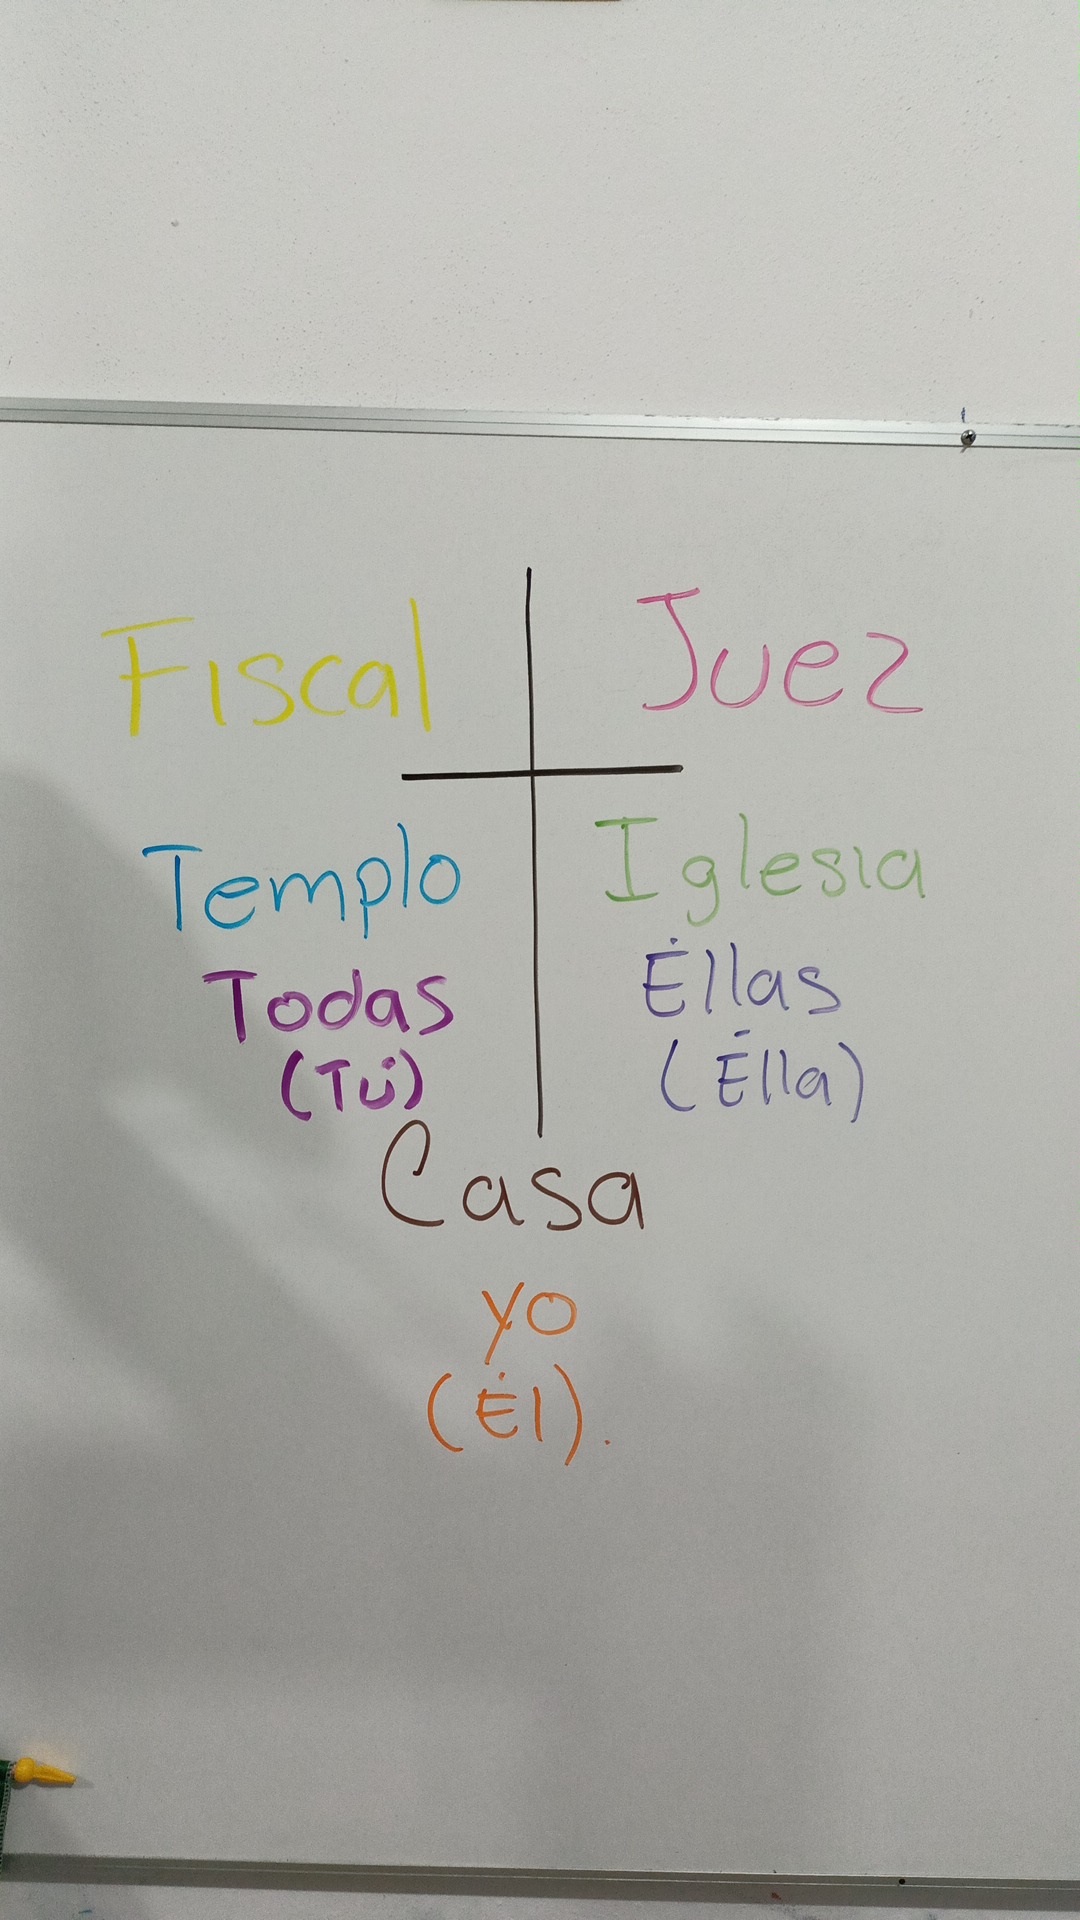 Fiscal
Juez
Templo
Iglesia
Todas
Éllas
(Tú)
(Élla)
Casa
yo
(Él).